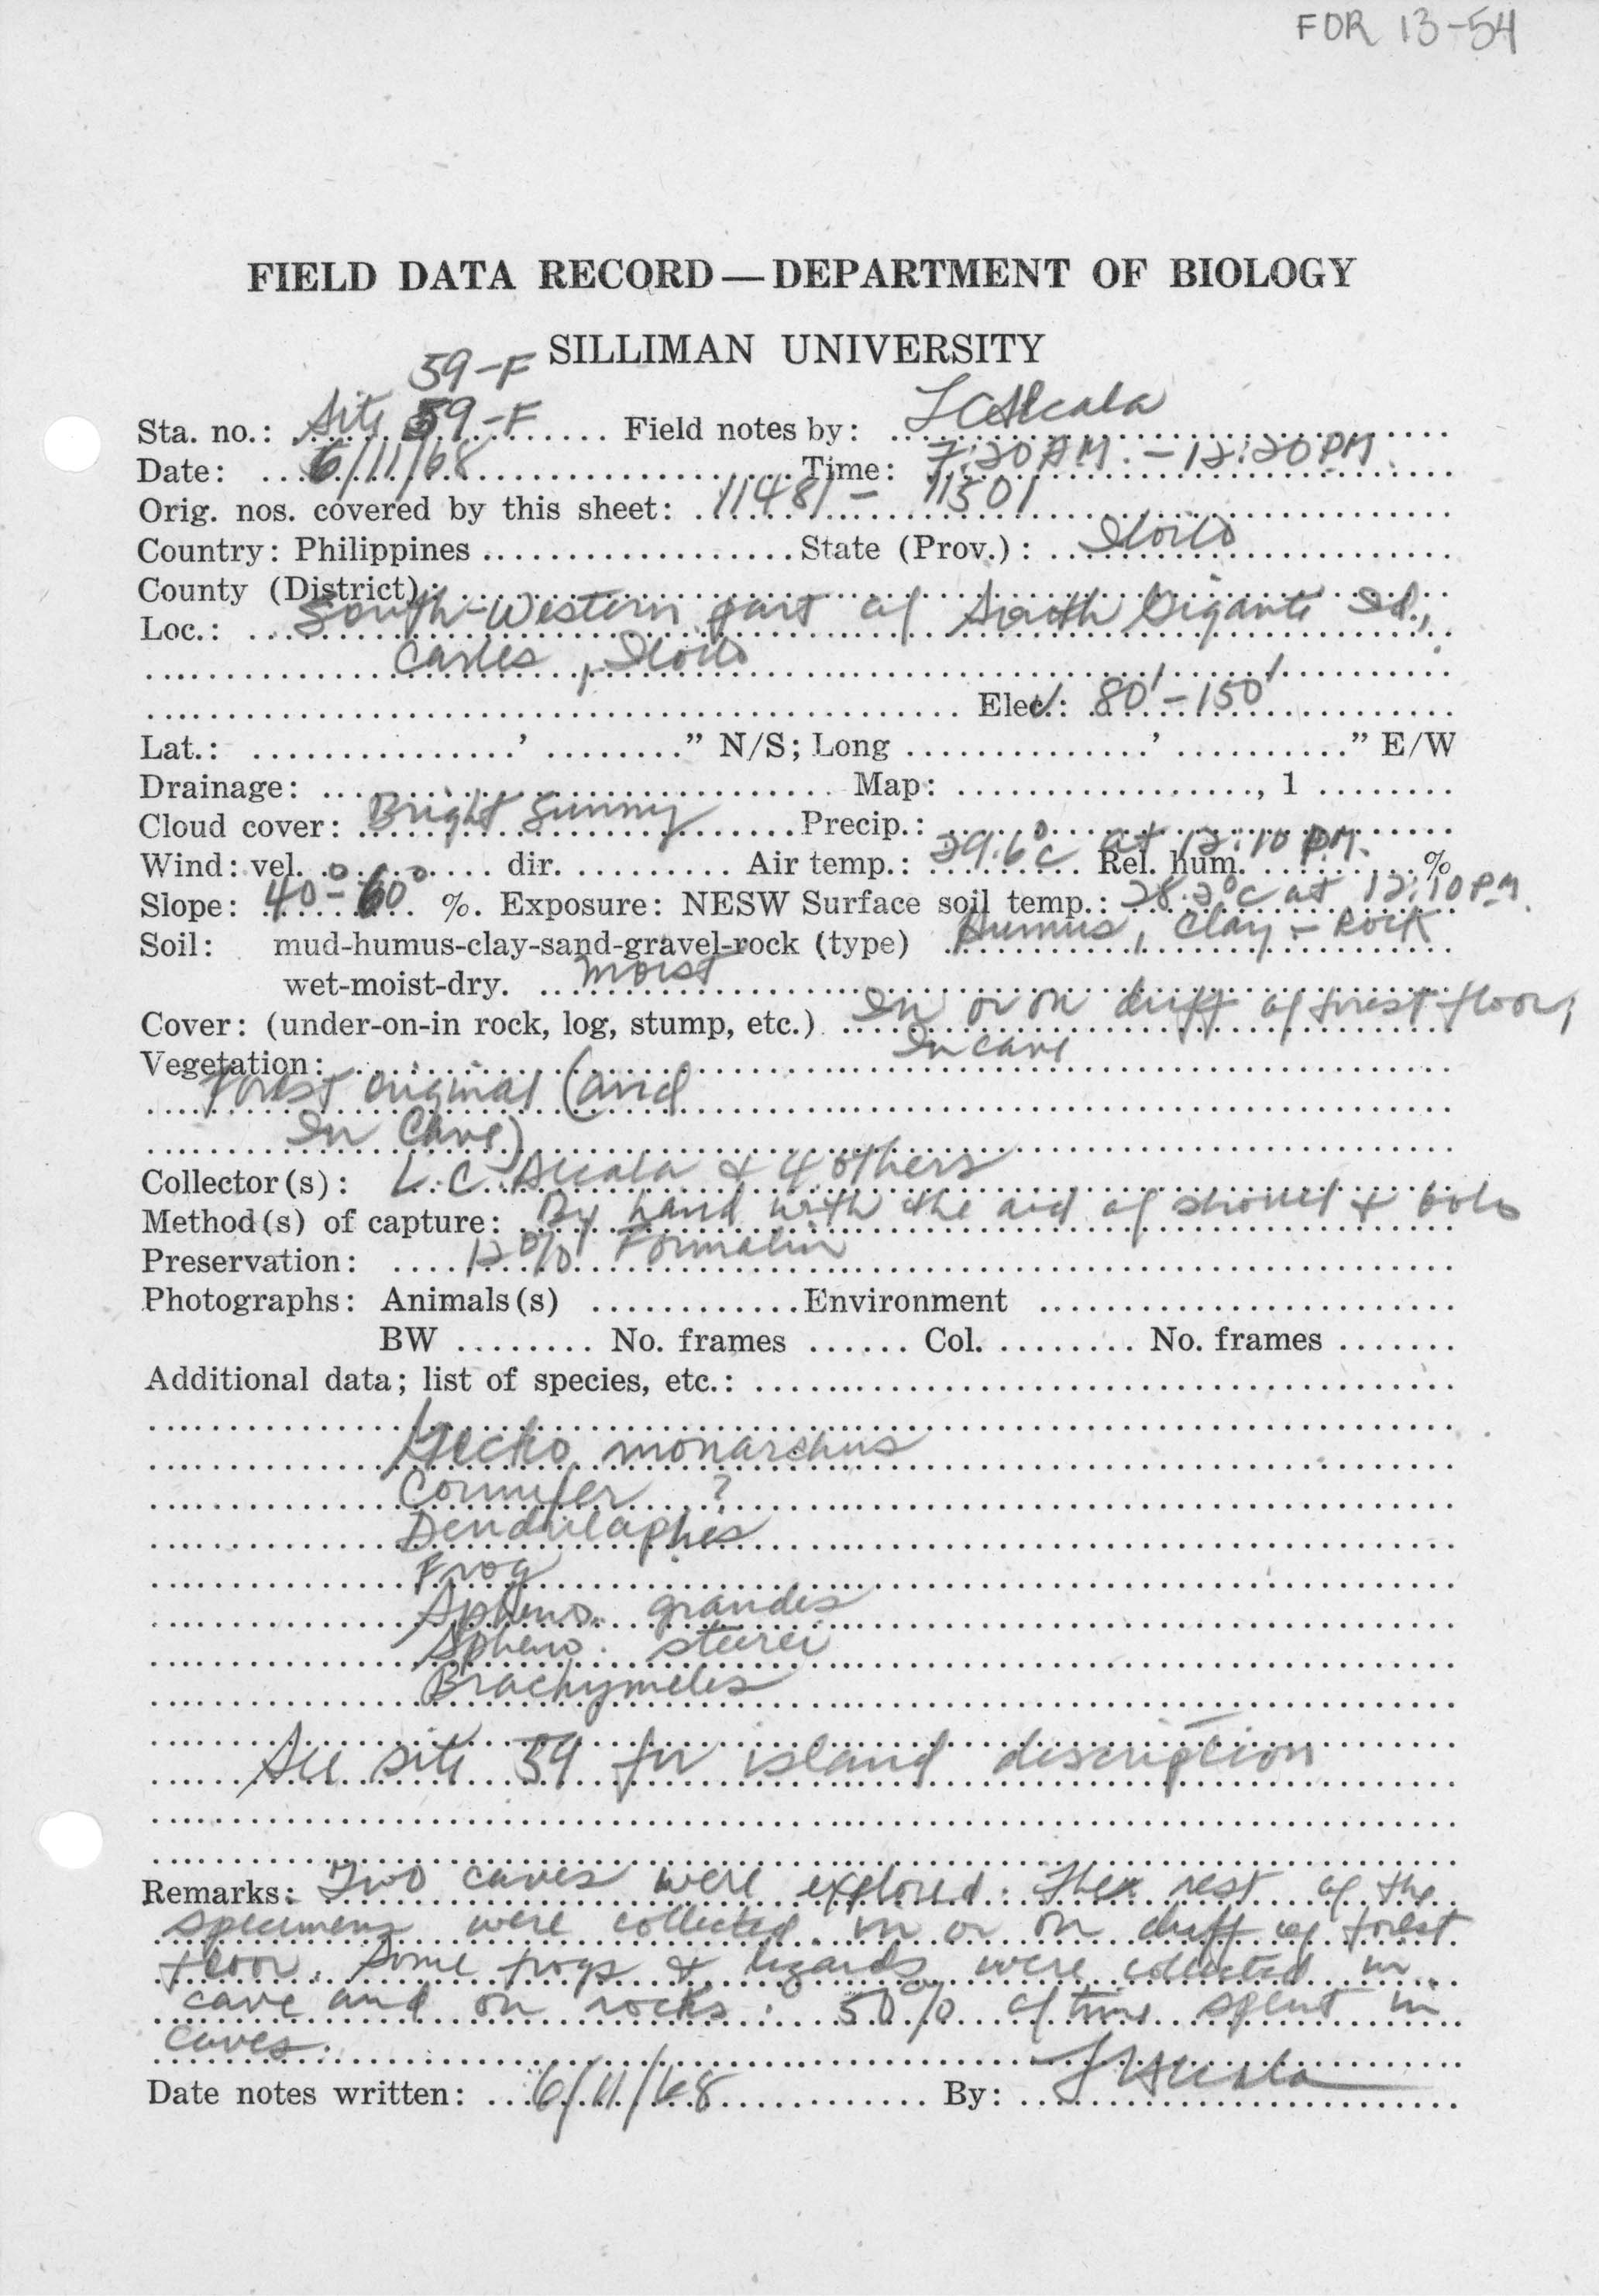 FOR 13-54
FIELD DATA RECORD—DEPARTMENT OF BIOLOGY
SILLIMAN UNIVERSITY
59-F
Sta. no.: Site 59-F Field notes by: LCAlcala
Date: 6/11/68 Time: 7:20 AM. - 12:20 PM.
Orig. nos. covered by this sheet: 11481 - 11501
Country: Philippines State (Prov.): Iloilo
County (District):
Loc.: South-Western part of South Gigante Id.,
Carles, Iloilo
Elev.: 80' - 150'
Lat.: ' " N/S; Long ' " E/W
Drainage: Map: , 1
Cloud cover: Bright Sunny Precip.:
Wind: vel. dir. Air temp.: 29.6°C at 12:10 PM. Rel. hum. %
Slope: 40° - 60° %. Exposure: NESW Surface soil temp.: 28.2°C at 12:10 PM.
Soil: mud-humus-clay-sand-gravel-rock (type) Humus, Clay - Rock
wet-moist-dry. moist
Cover: (under-on-in rock, log, stump, etc.) In or on duff of forest floor;
In cave
Vegetation:
Forest original (and
In Cave)
Collector(s): L.C. Alcala & 4 others
Method(s) of capture: By hand with the aid of shovel & bolo
Preservation: 12% Formalin
Photographs: Animals(s) Environment
BW No. frames Col. No. frames
Additional data; list of species, etc.:
Gecko monarchus
Cornufer ?
Dendrelaphis
Frog
Spheno. grandis
Spheno. steerei
Brachymeles
See site 59 for island description
Remarks: Two caves were explored. The rest of the
specimens were collected in or on duff of forest
floor. Some frogs & lizards were collected in
cave and on rocks. 50% of time spent in
caves.
Date notes written: 6/11/68 By: LCAlcala